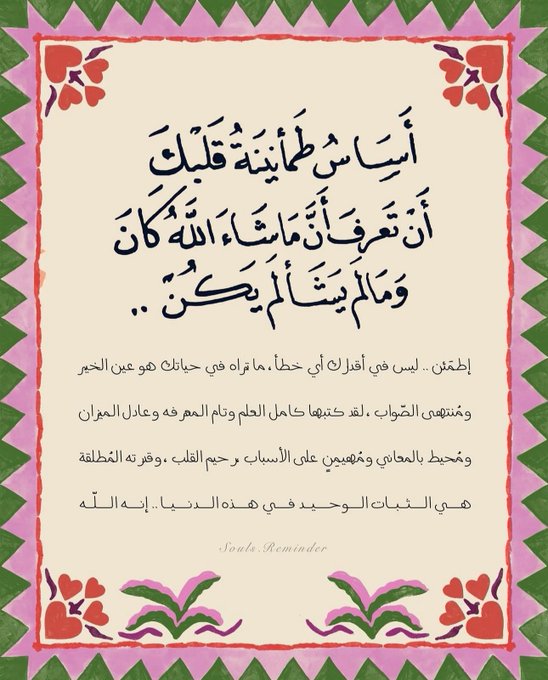 أَسَاسُ طَمأنِينَةُ قَلبْكَ
أَنْ تَعَرِفَ أَنَّ مَاشَاءَ اللَّهُ كَانَ
وَمَالَم يَشَأ لَم يَكُنْ ..
إطمَئن .. ليس في أقدارك أي خطأ، ما تراه في حياتك هو عين الخير
ومُنتهى الصّواب ، لقد كتبها كامل العلم وتام المعرفه وعادل الميزان
ومُحيط بالمعاني ومُهيمِنٍ على الأسباب رحيم القلب ، وقدرته المُطلقة
هي الثبات الوحيد في هذه الدنيا .. إنه اللّه
Souls Reminder